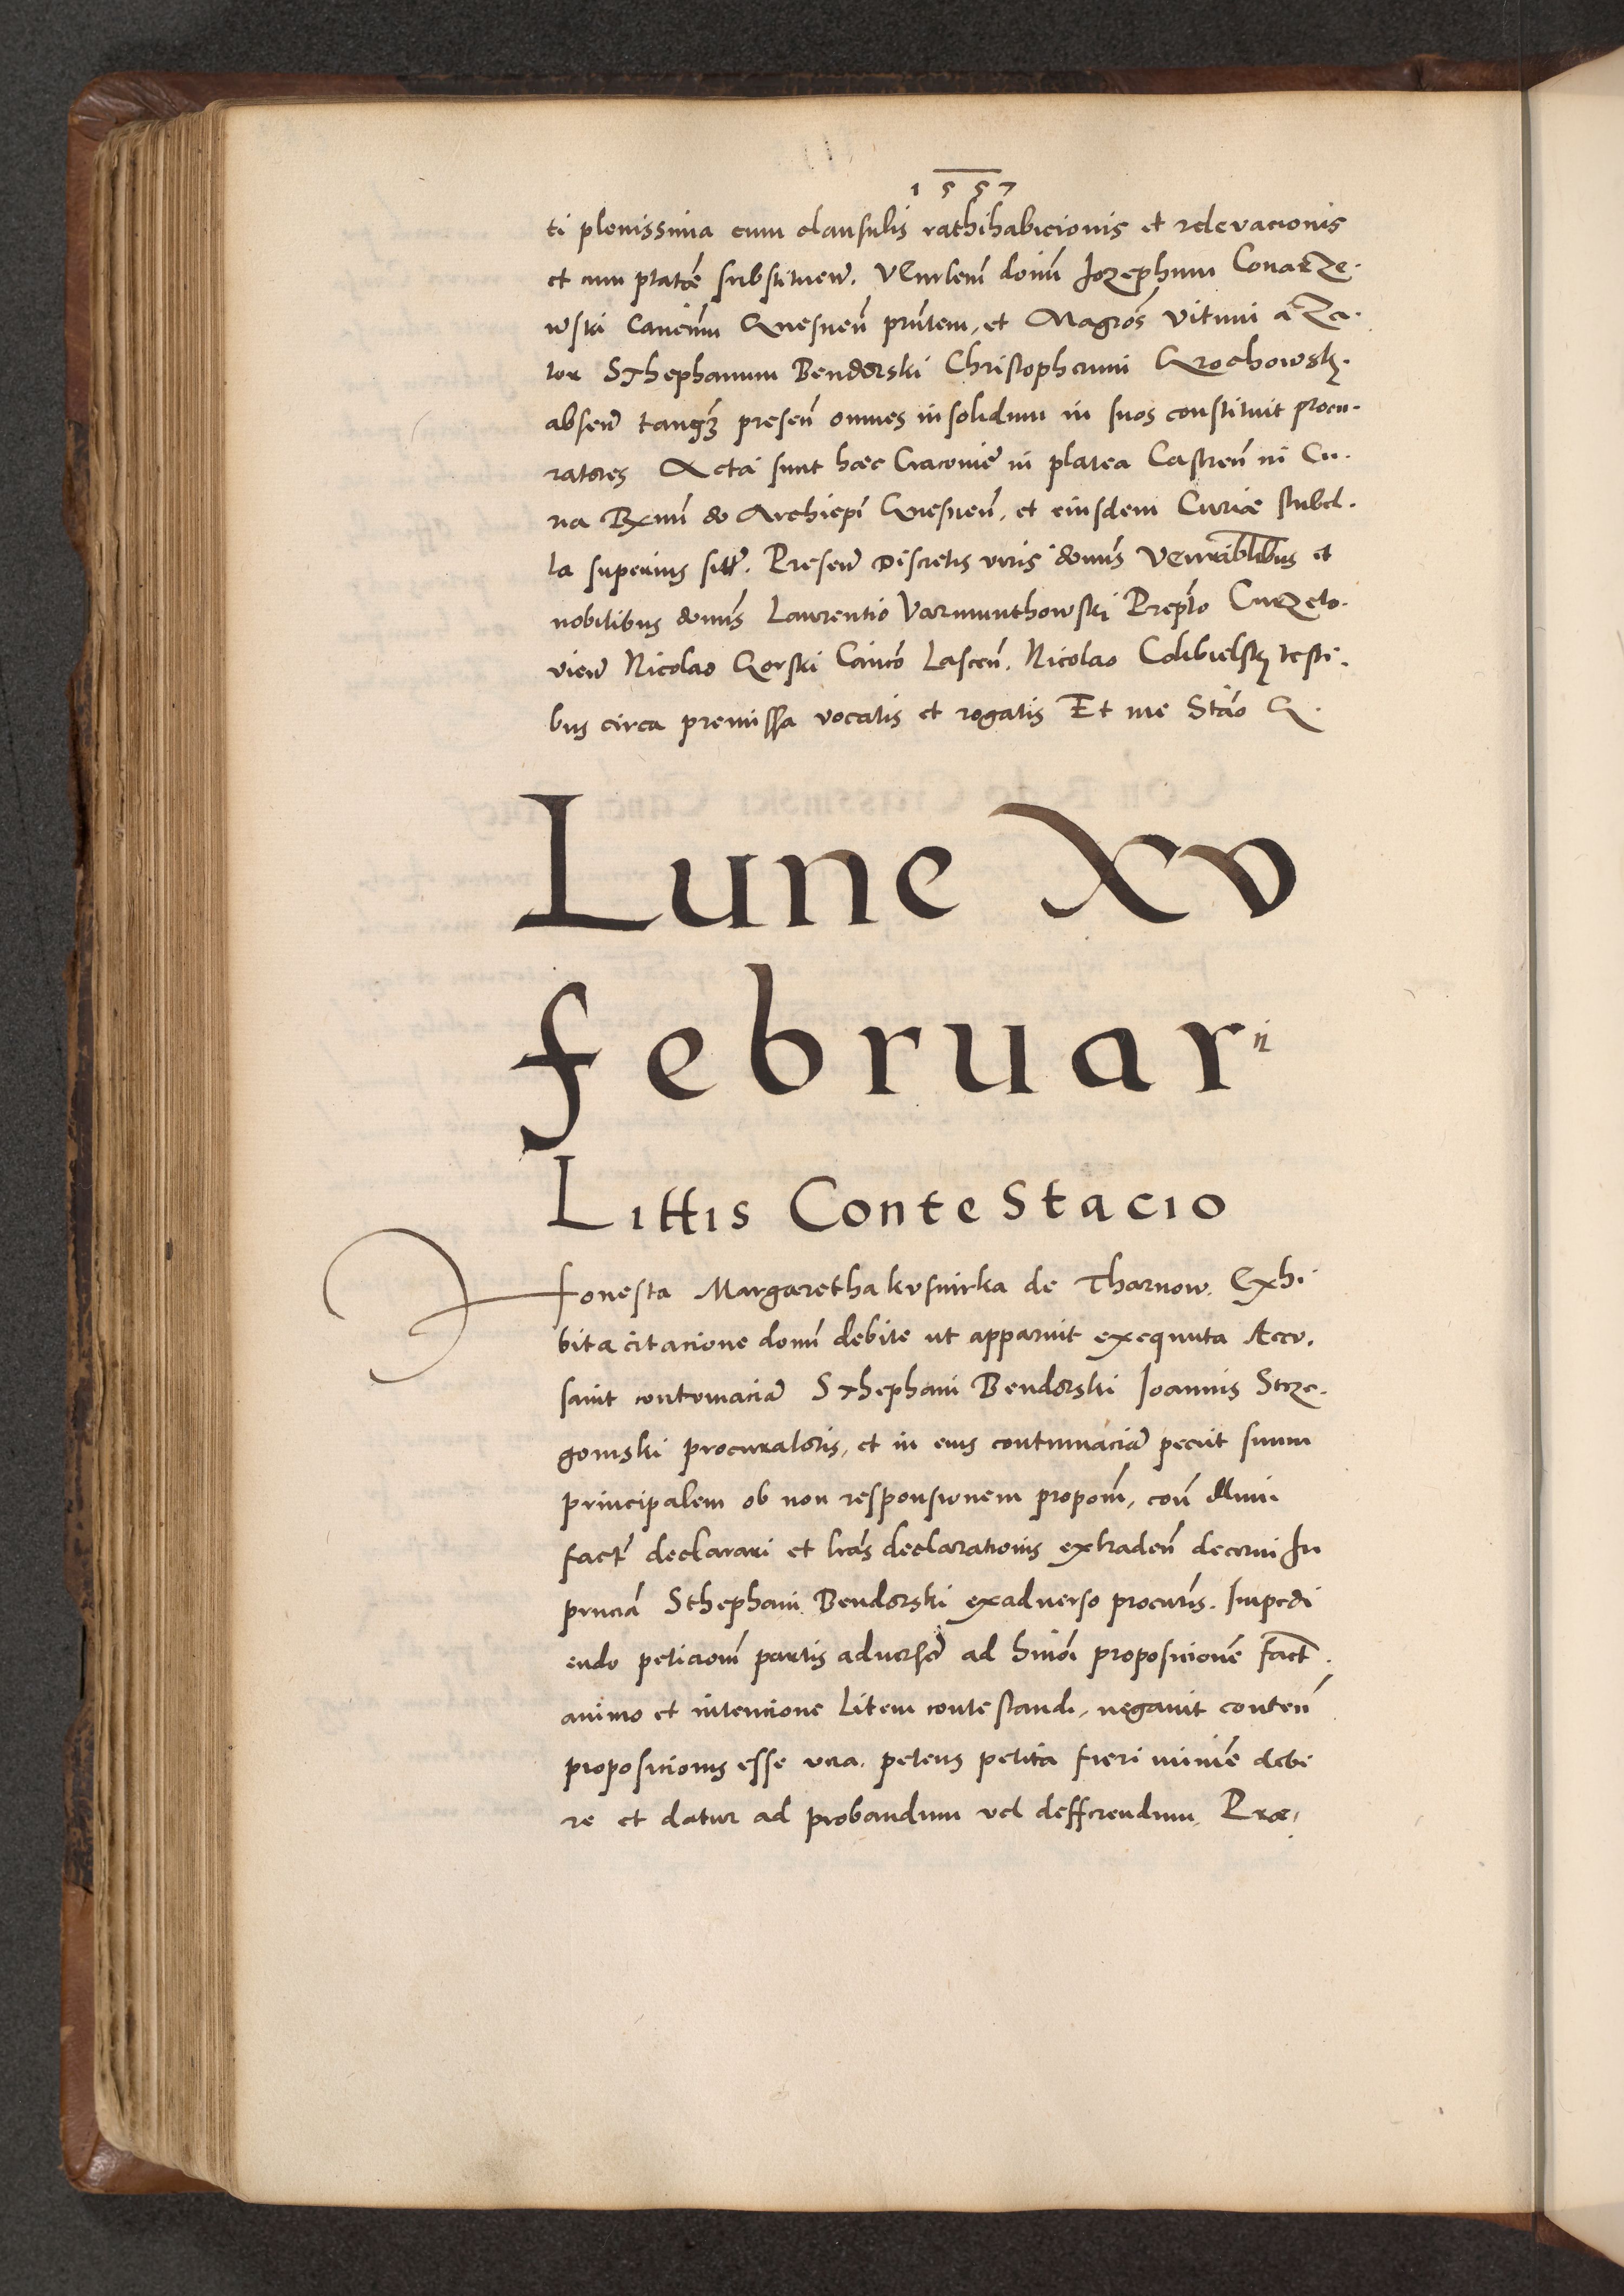 1557
ti plenissima cum clausulis rathihabicionis et relevacionis
et cum ptatẽ substituen̄. VEnrlem̄ donm̄ Jozephum Conarze-
wski Canicnm̄ Gnesnen̄ prn̄tem, et Magrōs Vitum a Za-
tor SThephanum Bendorski Christopherum Grochowskj.
absen̄ tanq̄ȝ presen̄ omnes insolidum in suos constituit procu-
ratores Acta sunt haec Cracouiæ in platea Castren̄ in Cu-
ria Rxmī do Archiepī Gnesnen̄, et eiusdem Curiæ stubel-
la superius sitt̄. Presen̄ Discretis viris domn̄s Venr̄abl̄ibus et
nobilibus domn̄s Laurentio Varmunthowski Prepto Curzelo-
vien̄ Nicolao Gorski Canco Lascen̄. Nicolao Colibielskj testi-
bus circa premissa vocatis et rogatis Et me Stāo G.
Lune XV
februarii
Littis ConteStacio
Honesta Margaretha kusnirka de Tharnow. Exhi-
bita citacione donn̄ debite ut apparuit exequuta Accu-
sauit contumaciā SThephani Bendorski Joannis Strze-
gomski procuratoris, et in eius contumaciā peciit suum
principalem ob non responsionem propom̄, con̄
fact̄ declarari et lrās declarationis extraden̄ decerni In
prnciā Sthephani Bendorski exaduerso procurīs. Impedi
endo peticiom̄ partis aduersæ ad hmōi proposicionē fact̄.
animo et intencione Litem contestandi, negauit conten̄
proposicionis esse vera. petens petita fieri minie debe
re et datur ad probandum vel defferendum. Præ,